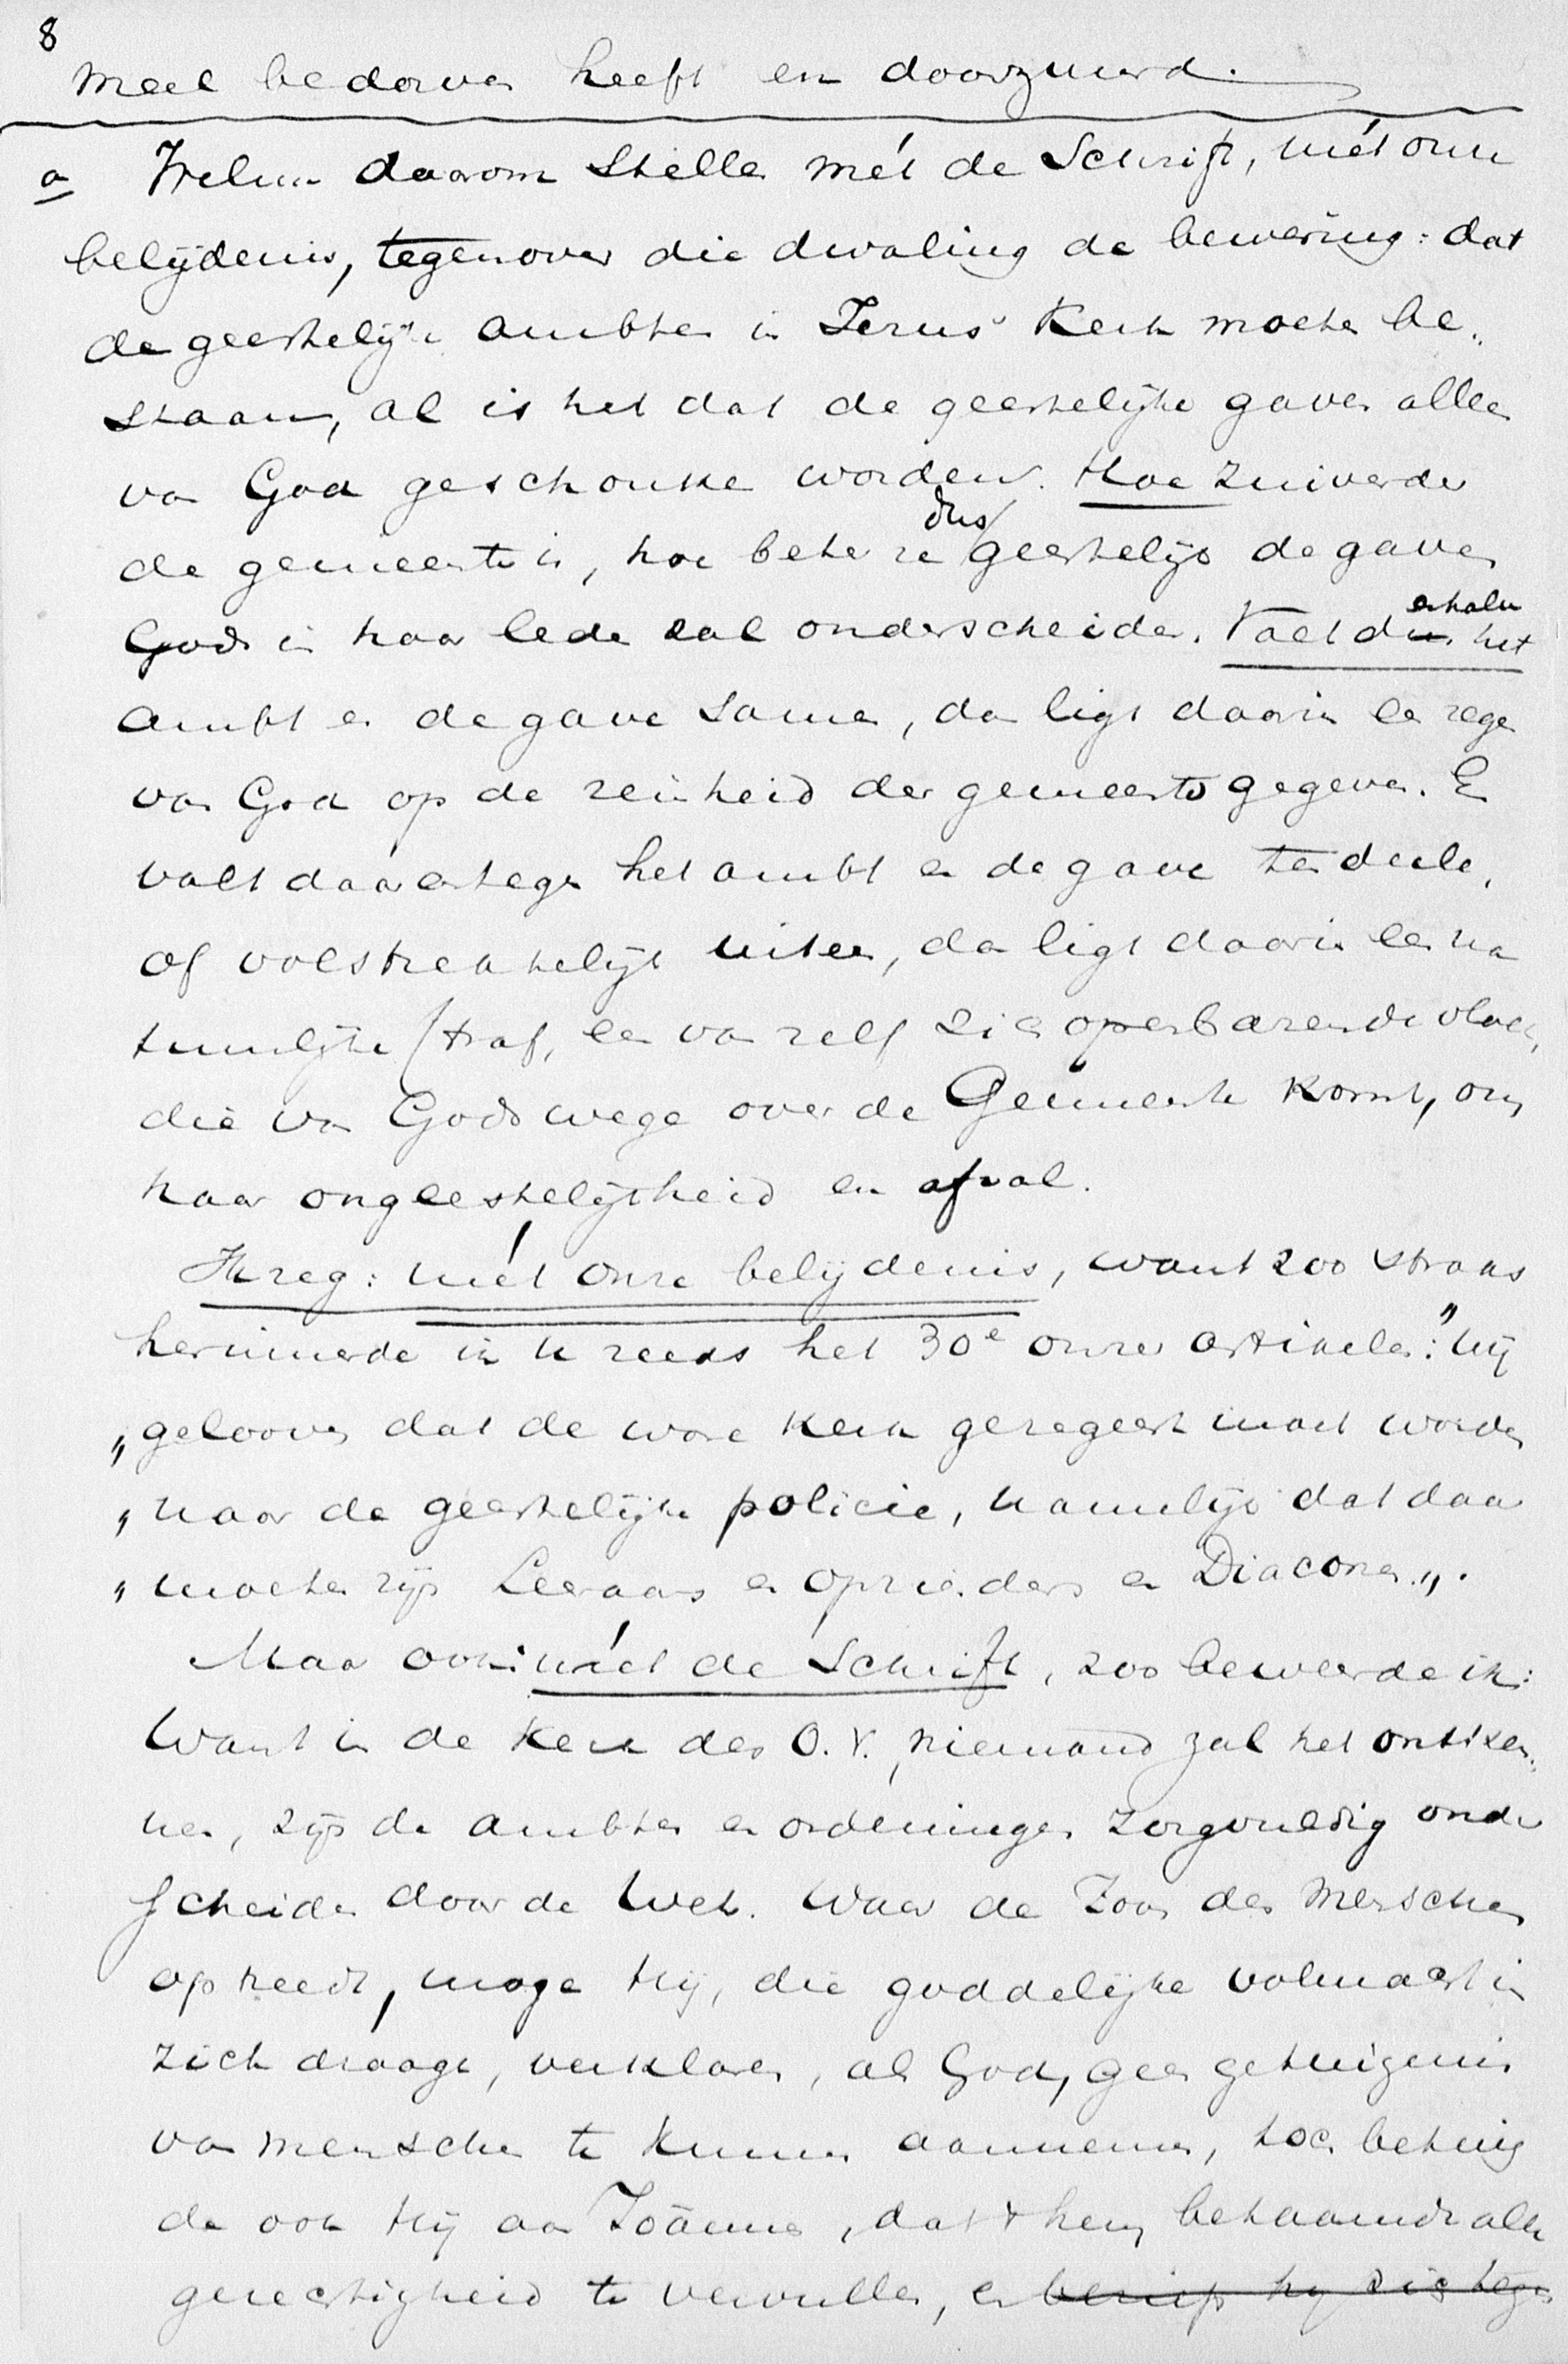 8
meel bedorven heeft en doorzuurd.
a Wij daarom stellen mét de Schrift, mét onze
belijdenis, tegenover die dwaling de bewering: dat
de geestelijke ambten in Jezus' Kerk moeten be„
staan, al is het dat de geestelijke gaven alleen
van God geschonken worden. Hoe zuiverder
de gemeente is, hoe beter ze dus geestelijk de gaven
Gods in haar leden zal onderscheiden. Valt derhalve het
ambt en de gave samen, dan ligt daarin een zegen
van God op de reinheid der gemeente gegeven. En
valt daarentegen het ambt en de gave ten deele,
of volstrektelijk uiteen, dan ligt daarin een na
tuurlijke straf, een van zelf zich openbarende vloek,
die van Gods wege over de Gemeente komt, om
haar ongeestelijkheid en afval.
Ik zeg: mét onze belijdenis, want zoo straks
herinnerde ik u reeds het 30e onzer artikelen: "Wij
„gelooven dat de ware Kerk geregeert moet worden
„naar de geestelijke policie, namelijk dat daar
„moeten zijn Leeraars en opzieders en Diaconen„.
Maar ook: mét de Schrift, zoo beweerde ik:
Want in de Kerk des O.V., niemand zal het ontken„
nen, zijn de ambten en ordeningen zorgvuldig onder
scheiden door de Wet. Waar de Zoon des Menschen
optreedt, moge Hij, die goddelijke volmacht in
zich draagt, verklaren, als God, geen getuigenis
van menschen te kunnen aannemen, toch betuig
de ook Hij aan Joännes, dat 't hem betaamde alle
gerechtigheid te vervullen, en beriep hij zich tegen